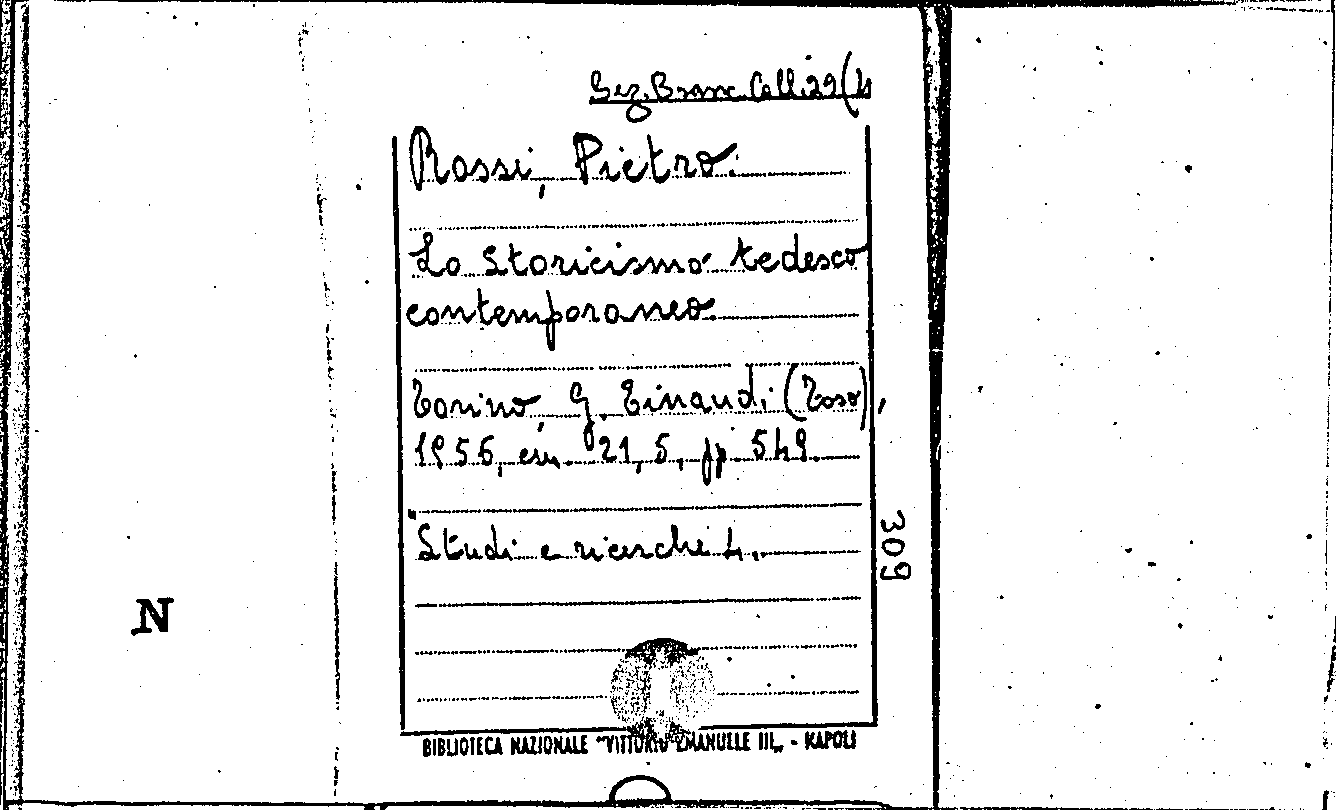 Sez. Branc. Coll. 29 (4
Rossi, Pietro.
Lo storicismo tedesco
contemporaneo.
Torino, G. Einaudi (Toso),
1956, cm. 21,5, pp. 549.
Studi e ricerche 4.
309
N
BIBLIOTECA NAZIONALE "VITTORIO EMANUELE III„ - NAPOLI